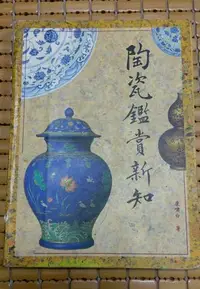 陶瓷鑑賞新知
著